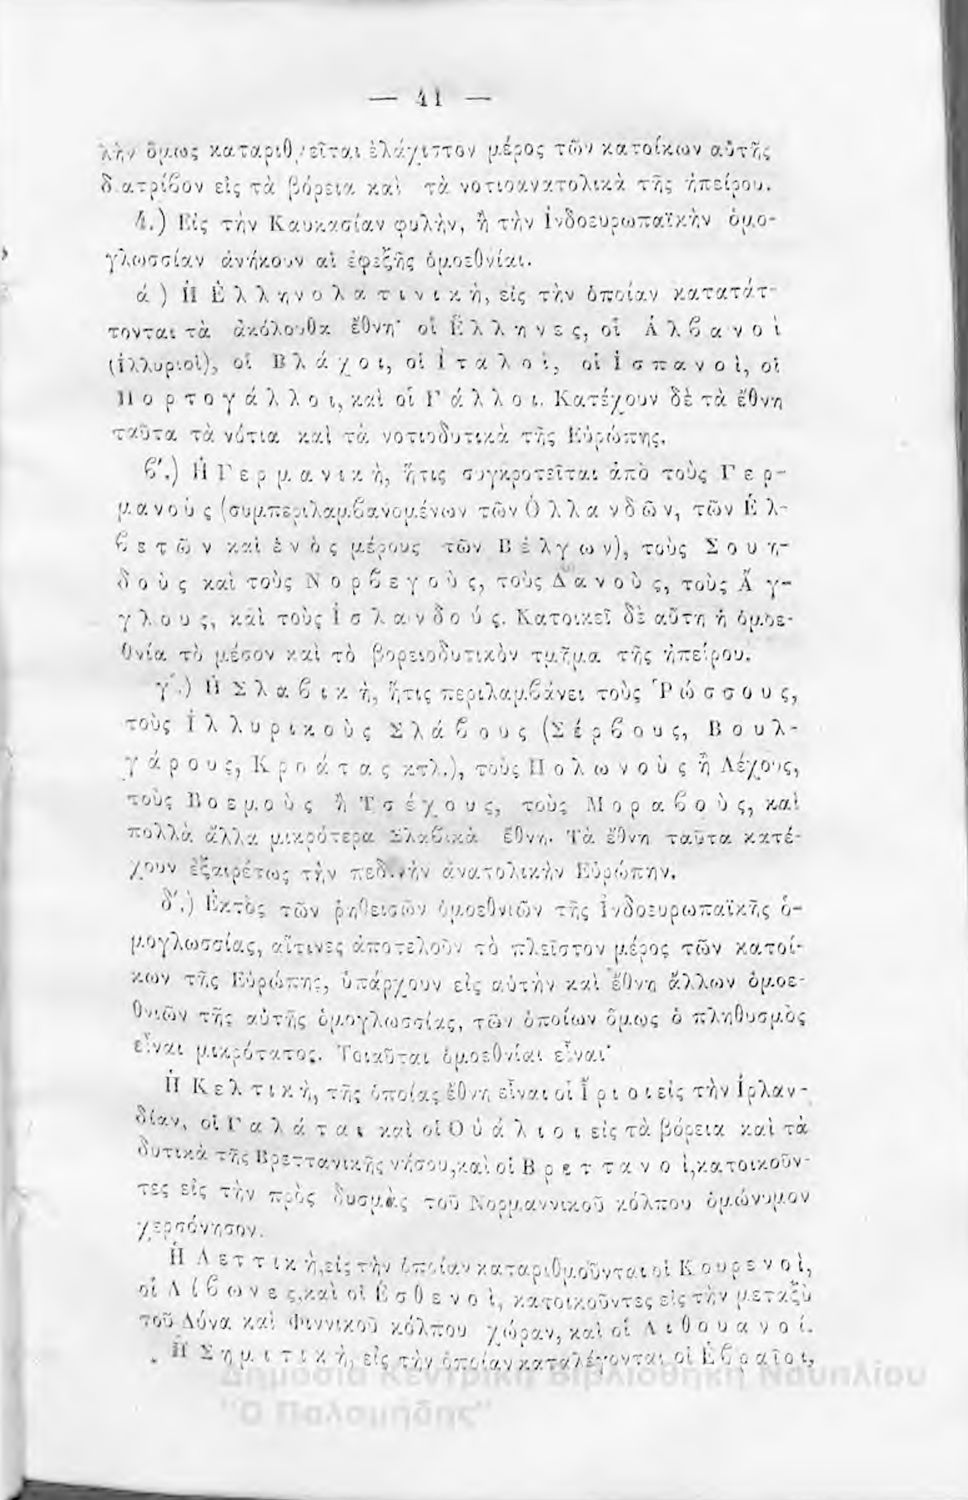 — 41 —
λὴν ὅμως καταριθμεῖται ἐλάχιστον μέρος τῶν κατοίκων αὐτῆς
διατρίβον εἰς τὰ βόρεια καὶ τὰ νοτιοανατολικὰ τῆς ἠπείρου.
4.) Εἰς τὴν Καυκασίαν φυλὴν, ἢ τὴν Ἰνδοευρωπαϊκὴν ὁμο-
γλωσσίαν ἀνήκουν αἱ ἐφεξῆς ὁμοεθνίαι.
ά) Ἡ Ἑλληνολατινικὴ, εἰς τὴν ὁποίαν κατατάτ-
τονται τὰ ἀκόλουθα ἔθνη· οἱ Ἕλληνες, οἱ Ἀλβανοὶ
(Ἰλλυριοὶ), οἱ Βλάχοι, οἱ Ἰταλοὶ, οἱ Ἱσπανοὶ, οἱ
Πορτογάλλοι, καὶ οἱ Γάλλοι. Κατέχουν δὲ τὰ ἔθνη
ταῦτα τὰ νότια καὶ τὰ νοτιοδυτικὰ τῆς Εὐρώπης.
β'.) Ἡ Γερμανικὴ, ἥτις συγκροτεῖται ἀπὸ τοὺς Γερ-
μανοὺς (συμπεριλαμβανομένων τῶν Ὁλλανδῶν, τῶν Ἑλ-
βετῶν καὶ ἑνὸς μέρους τῶν Βέλγων), τοὺς Σουη-
δοὺς καὶ τοὺς Νορβεγοὺς, τοὺς Δανοὺς, τοὺς Ἄγ-
γλους, καὶ τοὺς Ἰσλανδούς. Κατοικεῖ δὲ αὕτη ἡ ὁμοε-
θνία τὸ μέσον καὶ τὸ βορειοδυτικὸν τμῆμα τῆς ἠπείρου.
γ'.) Ἡ Σλαβικὴ, ἥτις περιλαμβάνει τοὺς Ῥώσσους,
τοὺς Ἰλλυρικοὺς Σλάβους (Σέρβους, Βουλ-
γάρους, Κροάτας κτλ.), τοὺς Πολωνοὺς ἢ Λέχους,
τοὺς Βοεμοὺς ἢ Τσέχους, τοὺς Μοραβοὺς, καὶ
πολλὰ ἄλλα μικρότερα Σλαβικὰ ἔθνη. Τὰ ἔθνη ταῦτα κατέ-
χουν ἐξαιρέτως τὴν πεδινὴν ἀνατολικὴν Εὐρώπην.
δ'.) Ἐκτὸς τῶν ῥηθεισῶν ὁμοεθνιῶν τῆς Ἰνδοευρωπαϊκῆς ὁ-
μογλωσσίας, αἵτινες ἀποτελοῦν τὸ πλεῖστον μέρος τῶν κατοί-
κων τῆς Εὐρώπης, ὑπάρχουν εἰς αὐτὴν καὶ ἔθνη ἄλλων ὁμοε-
θνιῶν τῆς αὐτῆς ὁμογλωσσίας, τῶν ὁποίων ὅμως ὁ πληθυσμὸς
εἶναι μικρότατος. Τοιαῦται ὁμοεθνίαι εἶναι·
Ἡ Κελτικὴ, τῆς ὁποίας ἔθνη εἶναι οἱ Ἴριοι εἰς τὴν Ἰρλαν-
δίαν, οἱ Γαλάται καὶ οἱ Οὐάλιοι εἰς τὰ βόρεια καὶ τὰ
δυτικὰ τῆς Βρεττανικῆς νήσου, καὶ οἱ Βρεττανοὶ, κατοικοῦν-
τες εἰς τὴν πρὸς δυσμὰς τοῦ Νορμαννικοῦ κόλπου ὁμώνυμον
χερσόνησον.
Ἡ Λεττικὴ, εἰς τὴν ὁποίαν καταριθμοῦνται οἱ Κουρενοὶ,
οἱ Λίβωνες, καὶ οἱ Ἐσθενοὶ, κατοικοῦντες εἰς τὴν μεταξὺ
τοῦ Δύνα καὶ Φιννικοῦ κόλπου χώραν, καὶ οἱ Λιθουανοί.
Ἡ Σημιτικὴ, εἰς τὴν ὁποίαν καταλέγονται οἱ Ἑβραῖοι,
Δημόσια Κεντρική Βιβλιοθήκη Ναυπλίου
"Ο Παλαμήδης"